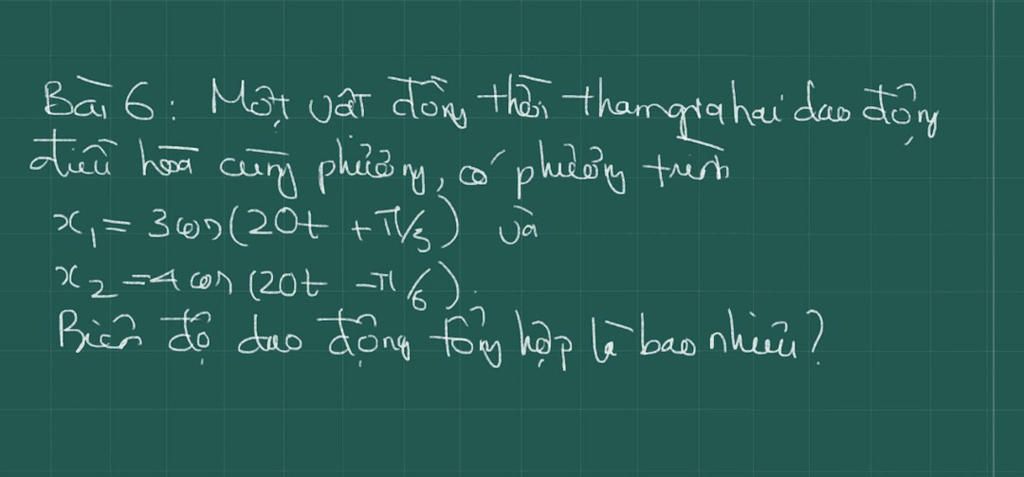 Bài 6: Một vật đồng thời tham gia hai dao động
điều hoà cùng phương, có phương trình
x₁ = 3cos(20t + π/3) và
x₂ = 4cos(20t - π/6).
Biên độ dao động tổng hợp là bao nhiêu?